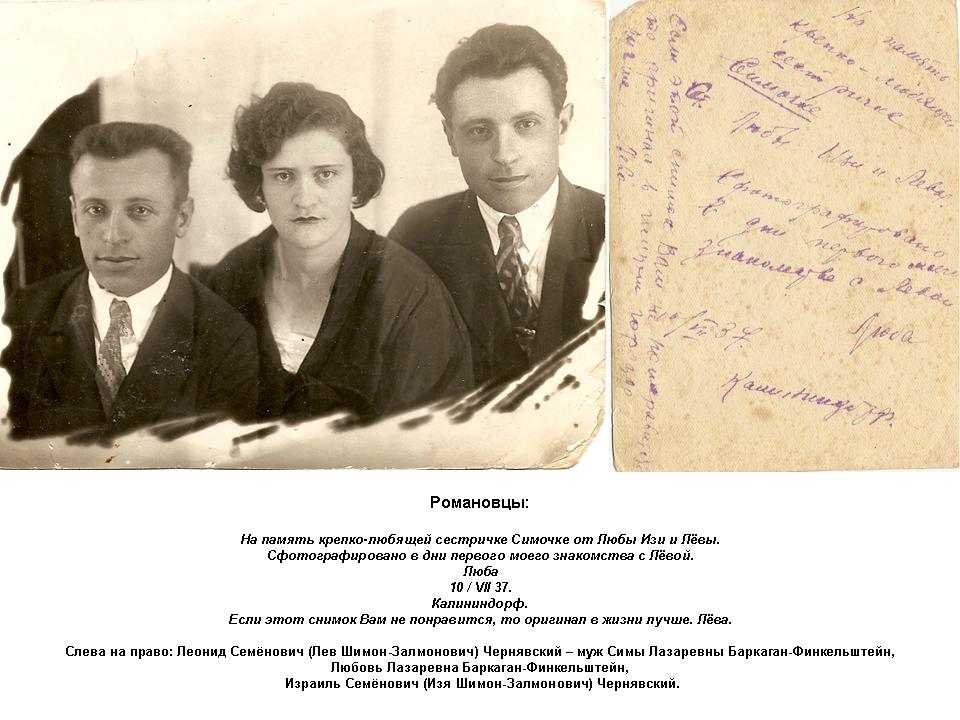 На память
крепко-любящей
сестричке
Симочке
От Любы Изи и Лёвы
Сфотографировано
в дни первого моего
знакомства с Лёвой
Люба
10/VII 37
Калининдорф.
Если этот снимок Вам не понаравится
то оригинал в жизни гораздо
лучше Лёва
Романовцы:
На память крепко-любящей сестричке Симочке от Любы Изи и Лёвы.
Сфотографировано в дни первого моего знакомства с Лёвой.
Люба
10 / VII 37.
Калининдорф.
Если этот снимок Вам не понравится, то оригинал в жизни лучше. Лёва.
Слева на право: Леонид Семёнович (Лев Шимон-Залмонович) Чернявский – муж Симы Лазаревны Баркаган-Финкельштейн,
Любовь Лазаревна Баркаган-Финкельштейн,
Израиль Семёнович (Изя Шимон-Залмонович) Чернявский.